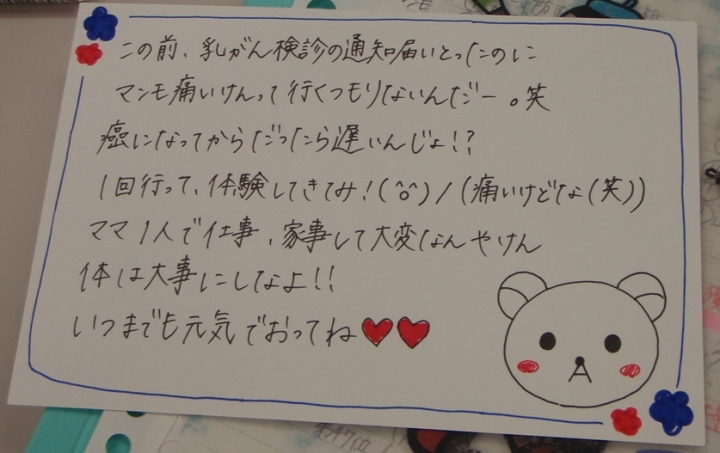 この前、乳がん検診の通知届いとったのに
マンモ痛いけんって行くつもりないんだー。笑
癌になってからだったら遅いんじょ!?
1回行って、体験してきてみ!(^o^)/(痛いけどな(笑))
ママ1人で仕事、家事して大変なんやけん
体は大事にしなよ!!
いつまでも元気でおってね♥♥